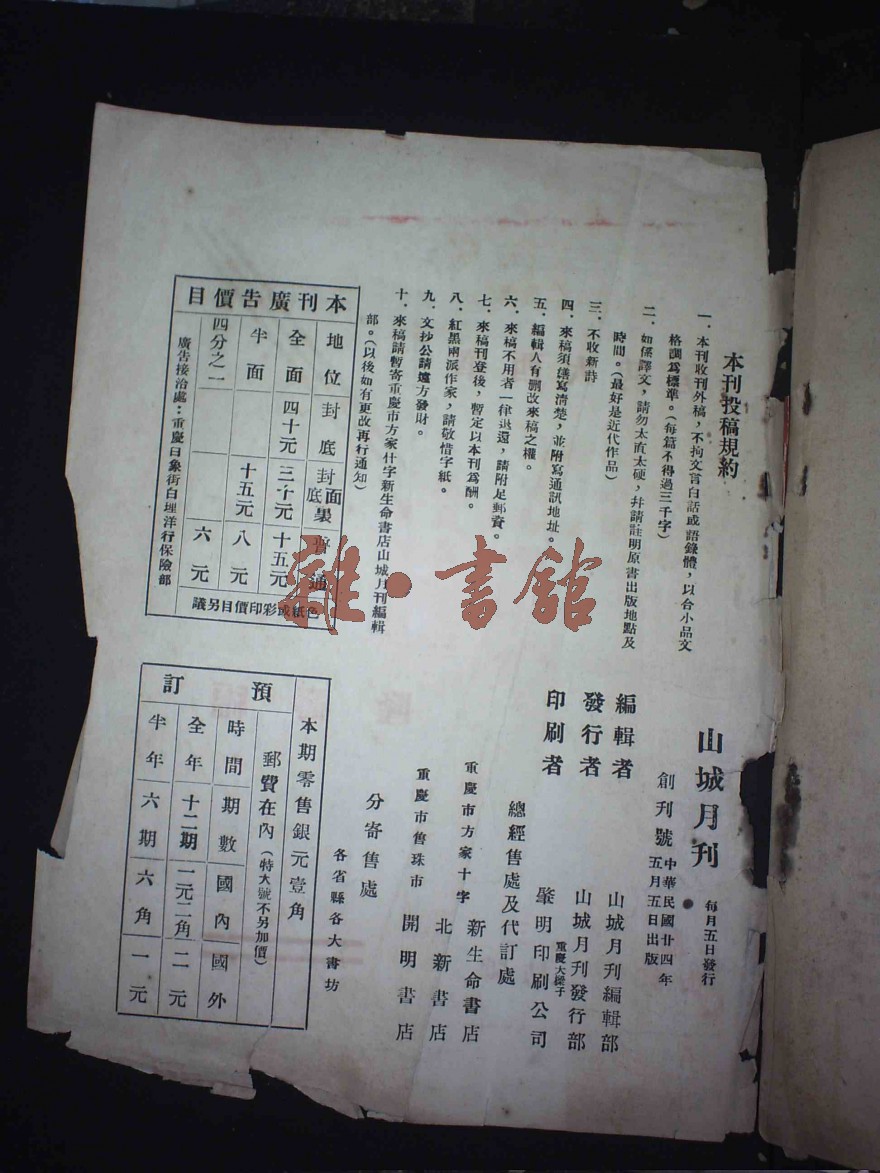 本刊投稿規約
一．本刊收刊外稿，不拘文言白話或語錄體，以合小品文
格調爲標準。（每篇不得過三千字）
二．如係譯文，請勿太直太硬，幷請註明原書出版地點及
時間。（最好是近代作品）
三．不收新詩
四．來稿須繕寫清楚，並附寫通訊地址。
五．編輯人有刪改來稿之權。
六．來稿不用者一律退還，請附足郵資。
七．來稿刊登後，暫定以本刊爲酬。
八．紅黑兩派作家，請敬惜字紙。
九．文抄公請遠方發財。
十．來稿請暫寄重慶市方家什字新生命書店山城月刊編輯
部。（以後如有更改再行通知）
本刊廣告價目
地位 封底 封面底裏 普通
全面 四十元 三十元 十五元
半面 十五元 八元
四分之一 六元
色紙或彩印價目另議
廣告接洽處：重慶白象街白理洋行保險部
山城月刊
每月五日發行
創刊號 中華民國廿四年
五月五日出版
編輯者 山城月刊編輯部
發行者 山城月刊發行部
印刷者 肇明印刷公司
重慶大樑子
總經售處及代訂處
重慶市方家十字 新生命書店
北新書店
重慶市售珠市 開明書店
分寄售處
各省縣各大書坊
本期零售銀元壹角
預訂
郵費在內（特大號不另加價）
時間 期數 國內 國外
全年 十二期 一元二角 二元
半年 六期 六角 一元
雜·書館